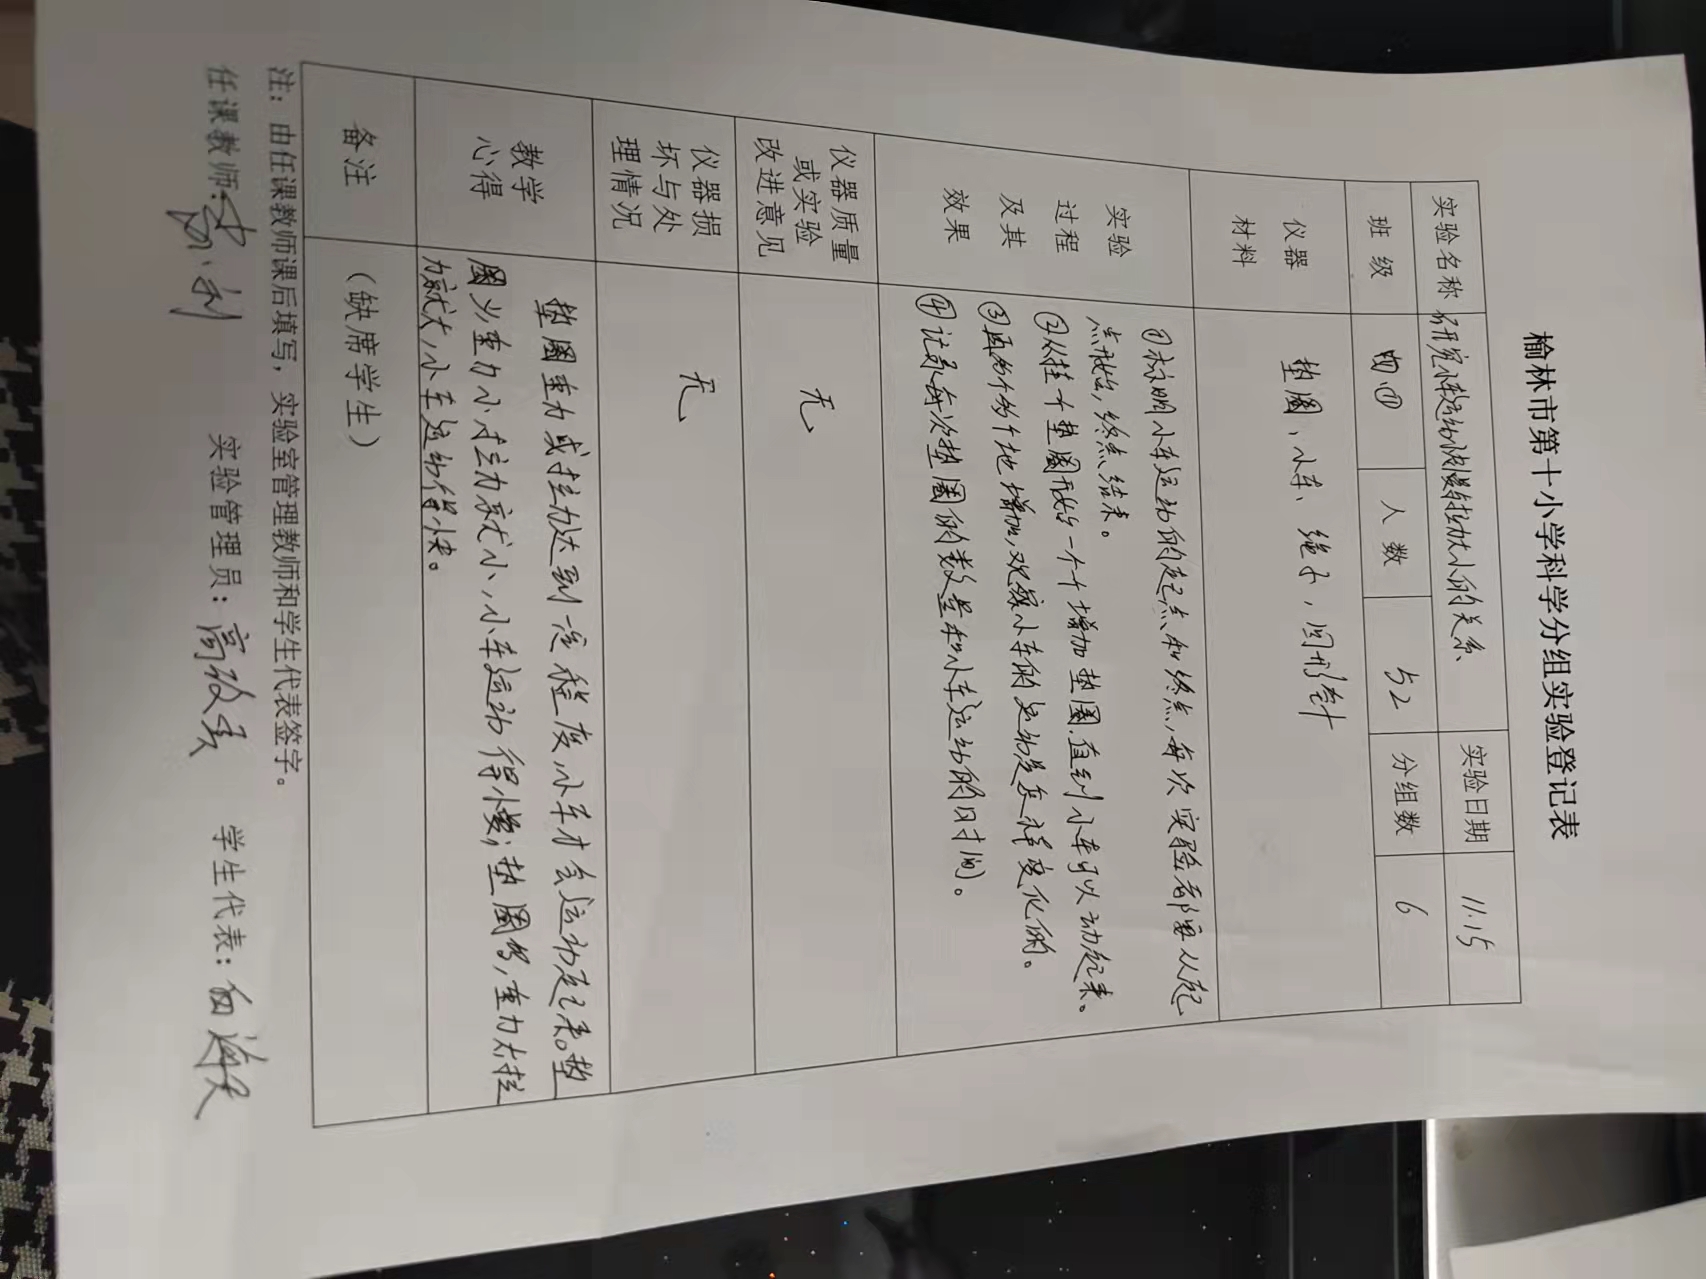 榆林市第十小学科学分组实验登记表
实验名称 研究小车运动快慢与拉力大小的关系 实验日期 11.15
班级 四① 人数 52 分组数 6
仪器 垫圈、小车、绳子、回形针
材料
①标明小车运动的起点和终点,每次实验都要从起
实验 点开始,终点结束。
过程 ②从挂一个垫圈开始一个个增加垫圈,直到小车可以动起来。
及其 ③再
个地增加,观察小车的运动是怎样变化的。
效果 ④记录每次垫圈的数量和小车运动的时间。
仪器质量
或实验 无
改进意见
仪器损
坏与处 无
理情况
垫圈重力或拉力达到一定程度,小车才会运动起来。垫
教学 圈少重力小拉力就小,小车运动得慢;垫圈多,重力大拉
心得 力就大,小车运动得快。
备注 (缺席学生)
注:由任课教师课后填写,实验室管理教师和学生代表签字。
任课教师: 实验管理员:高 学生代表: